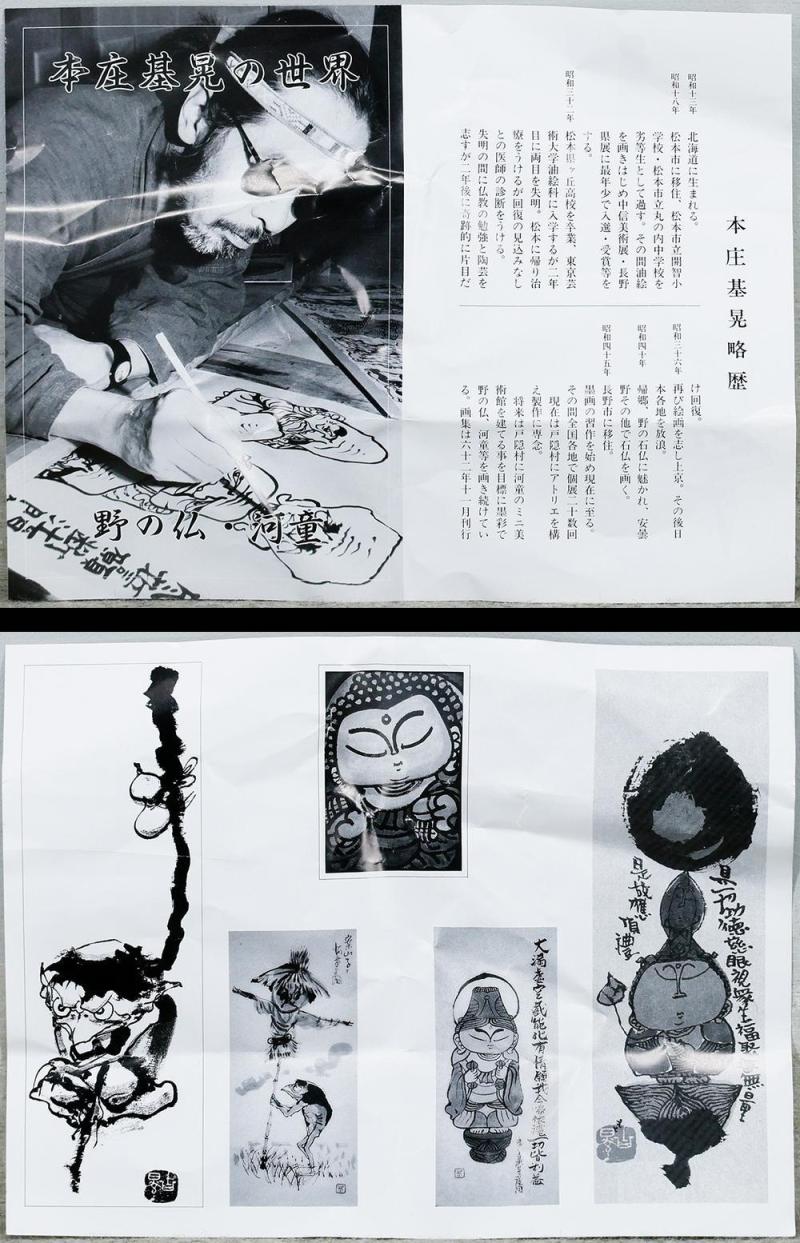 本庄基晃の世界
野の仏・河童
本庄基晃略歴
昭和十三年
北海道に生まれる。
昭和十八年
松本市に移住、松本市立開智小
学校・松本市立丸の内中学校を
劣等生として過す。その間油絵
を画きはじめ中信美術展・長野
県展に最年少で入選・受賞等を
する。
昭和三十二年
松本県ヶ丘高校を卒業、東京芸
術大学油絵科に入学するが二年
目に両目を失明。松本に帰り治
療をうけるが回復の見込みなし
との医師の診断をうける。
失明の間に仏教の勉強と陶芸を
志すが二年後に奇跡的に片目だ
け回復。
昭和三十六年
再び絵画を志し上京。その後日
本各地を放浪。
昭和四十年
帰郷、野の石仏に魅かれ、安曇
野その他で石仏を画く。
昭和四十五年
長野市に移住。
墨画の習作を始め現在に至る。
その間全国各地で個展二十数回
現在は戸隠村にアトリエを構
え製作に専念。
将来は戸隠村に河童のミニ美
術館を建てる事を目標に墨彩で
野の仏、河童等を画き続けてい
る。画集は六十二年十一月刊行
具一切功徳慈眼視衆生福聚海無量
是故應頂禮